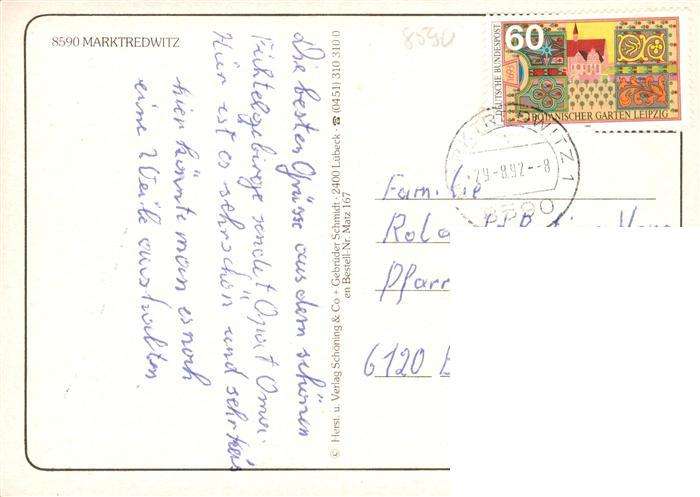 8590 MARKTREDWITZ
Die besten Grüsse aus dem schönen
Fichtelgebirge sendet Opa u. Oma.
Hier ist es sehr schön und sehr heis
hier könnte man es noch
eine Weile aushalten.
© Herst. u. Verlag Schöning & Co + Gebrüder Schmidt · 2400 Lübeck · ☎ (0451) 310 310 0
en Bestell-Nr. Matz 167
8590
60
DEUTSCHE BUNDESPOST
BOTANISCHER GARTEN LEIPZIG
MARKTREDWITZ 1
29-8.92--8
8590
Familie
Pfarr
6120